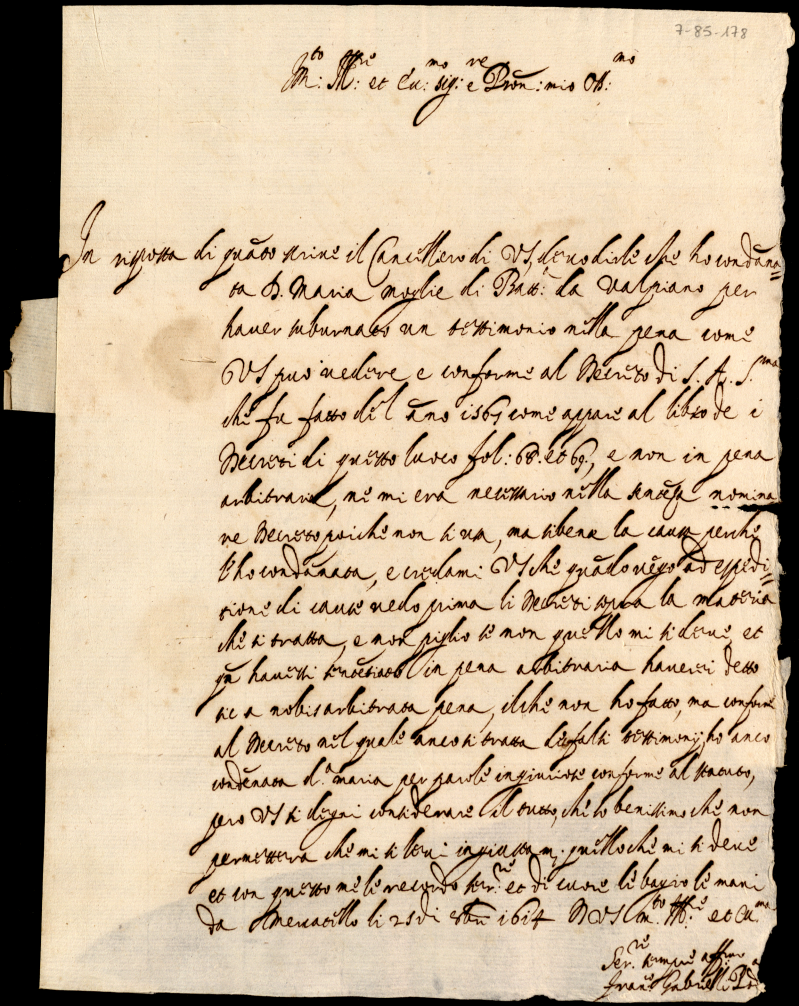 7-85-178
M.to Ill.re et Ecc.mo sig.re e Pron: mio Oss.mo
In risposta di quãto scrive il Cancelliero di VS, devo dirle che ho condãna=
ta D. Maria moglie di Batt.a da Valpiano per
haver suburnato un testimonio nella pena come
VS puo vedere e conforme al Decreto di S. A. S.ma
che fu fatto del ãno 1567 come appare al libro de i
Decreti di questo luoco fol: 68. et 69, e non in pena
arbitraria, ne mi era necessario nella sentẽza nomina
re Decreto poiche non si usa, ma si bene la causa perche
l'ho condãnata, e credami VS che quãdo vẽgo ad espedi=
tione di cause vedo prima li Decreti sopra la materia
che si tratta, e non piglio se non quello mi si deve, et
qñ havessi sentẽtiato in pena arbitraria haverei detto
sic a nobis arbitrata pena, il che non ho fatto, ma conforme
al Decreto nel quale anco si tratta de falsi testimonij, ho anco
condẽnata d.a maria per parole ingiuriose conforme al statuto,
pero VS si degni considerare il tutto, che so benissimo che non
permettera che mi si levi ingiustam.e quello che mi si deve
et con questo me le recordo ser.re et di cuore le bagio le mani
da Mercatello li 25 di 1614 D VS m.to Ill.re et Ecc.ma
Ser.re sempre aff.mo
Franc.o Gabrielli